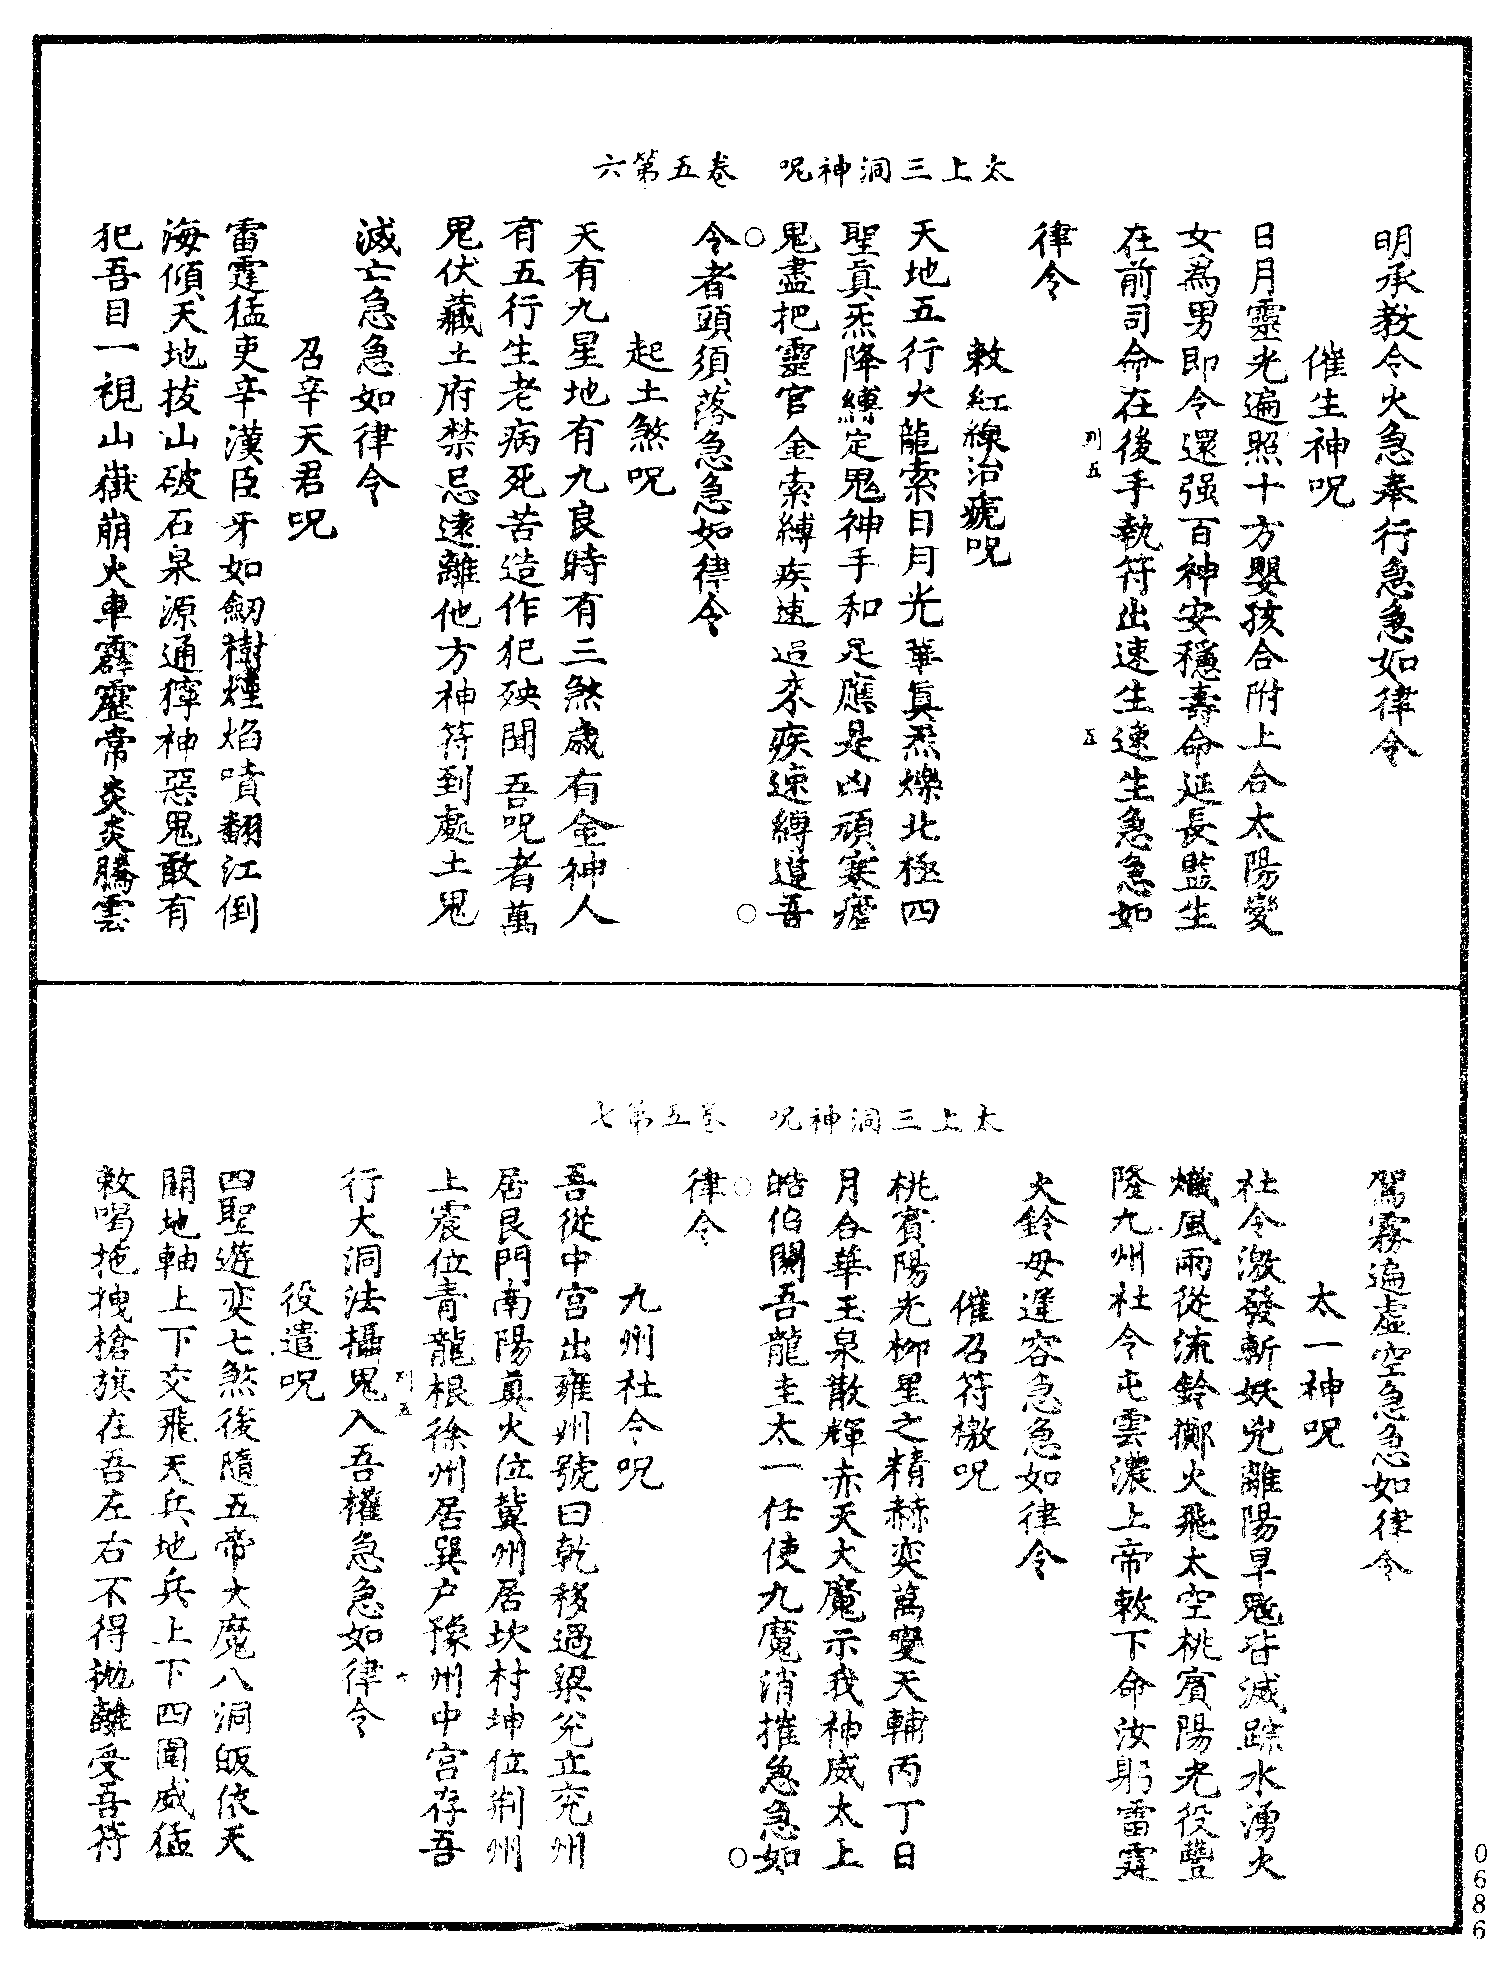 太上三洞神呪　卷五第六
明承教令火急奉行急急如律令
催生神呪
日月靈光遍照十方嬰孩合附上合太陽變
女爲男即令還强百神安穩壽命延長監生
在前司命在後手執符出速生速生急急如
律令
敕紅線治瘧呪
天地五行火龍索日月光華眞炁爍北極四
聖眞炁降縛定鬼神手和足應是凶頑寒瘧
鬼盡把靈官金索縛疾速追來疾速縛違吾
令者頭須落急急如律令
起土煞呪
天有九星地有九良時有三煞歲有金神人
有五行生老病死苦造作犯殃聞吾呪者萬
鬼伏藏土府禁忌遠離他方神符到處土鬼
滅亡急急如律令
召辛天君呪
雷霆猛吏辛漢臣牙如劒樹煙焰噴翻江倒
海傾天地拔山破石泉源通獰神惡鬼敢有
犯吾目一視山嶽崩火車霹靂常炎炎騰雲
列五
五
太上三洞神呪　卷五第七
駕霧遍虛空急急如律令
太一神呪
社令激發斬妖兇離陽旱魃皆滅踪水湧火
熾風雨從流鈴擲火飛太空桃賓陽光役豐
隆九州社令屯雲濃上帝敕下命汝躬雷霆
火鈴毋逢容急急如律令
催召符檄呪
桃賓陽光柳星之精赫奕萬變天輔丙丁日
月合華玉泉散輝赤天大魔示我神威太上
皓伯開吾龍圭太一任使九魔消摧急急如
律令
九州社令呪
吾從中宮出雍州號曰乾移過梁兊立兖州
居艮門南陽眞火位冀州居坎村坤位荆州
上震位青龍根徐州居巽户豫州中宮存吾
行大洞法攝鬼入吾權急急如律令
役遣呪
四聖遊奕七煞後隨五帝大魔八洞皈依天
關地軸上下交飛天兵地兵上下四圍威猛
敕喝拖拽槍旗在吾左右不得拋離受吾符
列五
七
0686